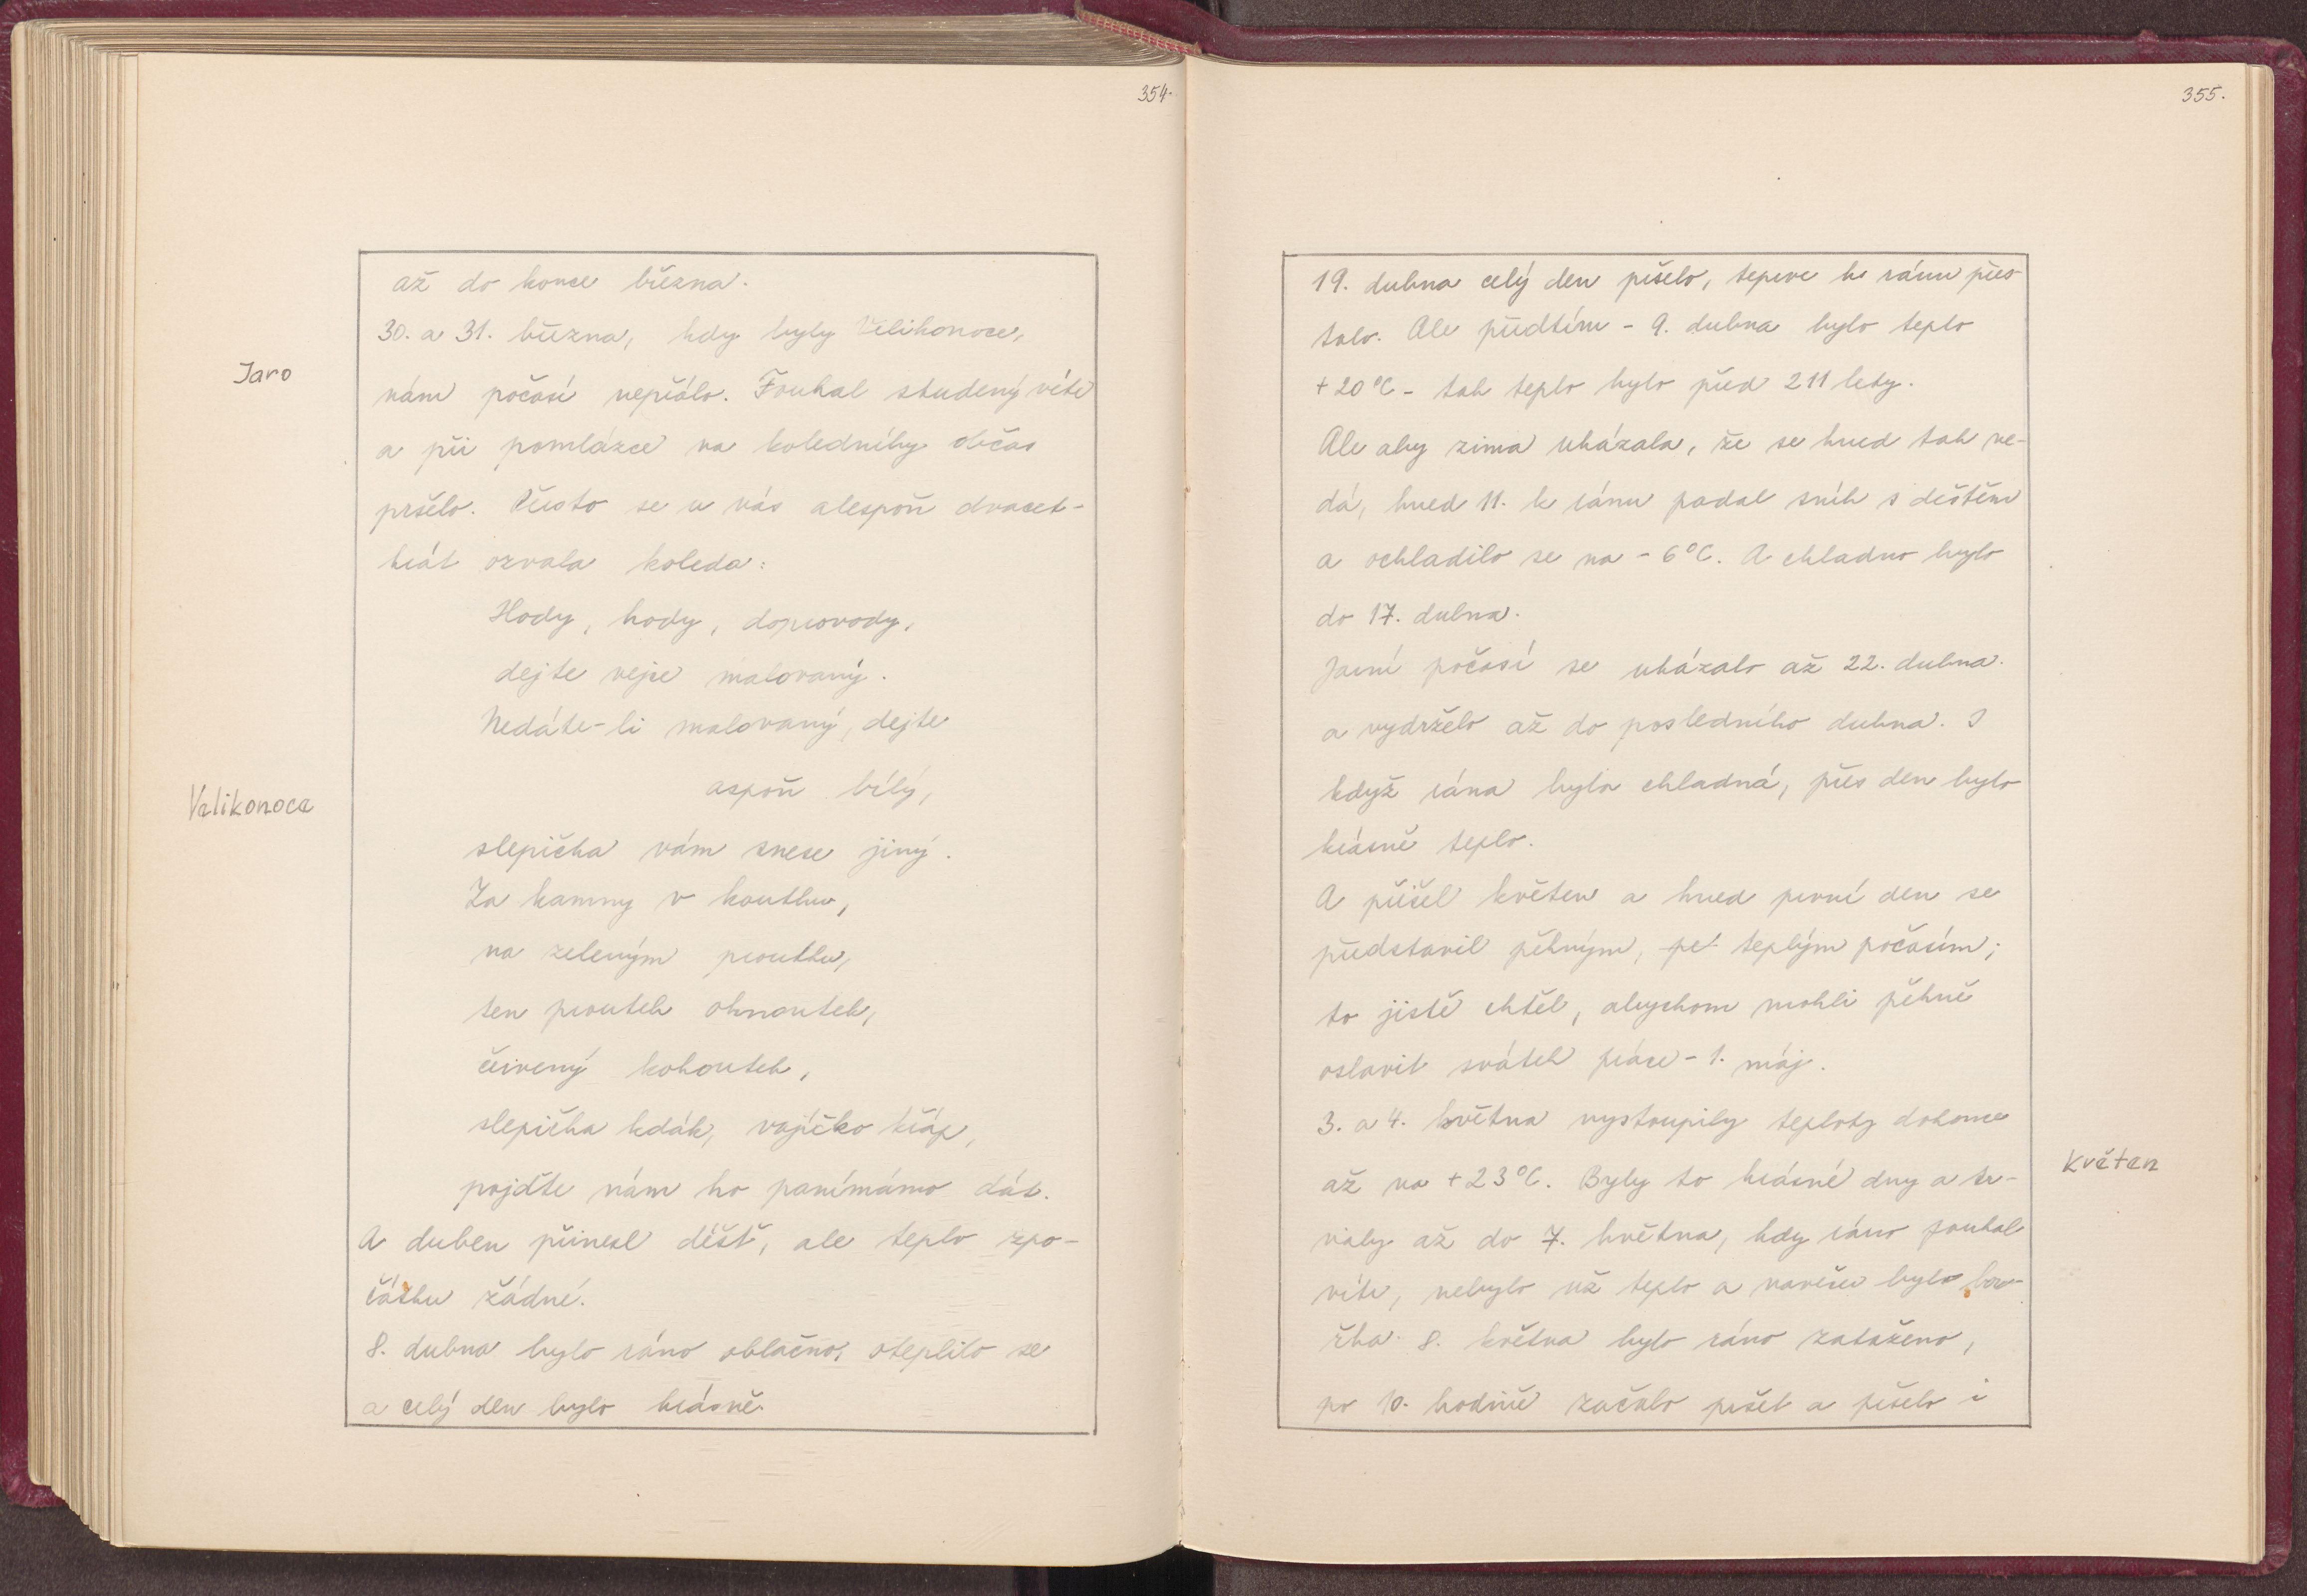 354.
Jaro
Velikonoce
až do konce března.
30. a 31. března, kdy byly Velikonoce,
nám počasí nepřálo. Foukal studený vítr
a při pomlázce na koledníky občas
pršelo. Přesto se u nás alespoň dvacet-
krát ozvala koleda:
Hody, hody, doprovody,
dejte vejce malovaný.
Nedáte-li malovaný, dejte
aspoň bílý,
slepička vám snese jiný.
Za kamny v koutku,
na zeleným proutku,
ten proutek ohnoutek,
červený kohoutek,
slepička kdák, vajíčko křáp,
pojďte nám ho panímámo dát.
A duben přinesl déšť, ale teplo zpo-
čátku žádné.
8. dubna bylo ráno oblačno, oteplilo se
a celý den bylo krásně.
355.
19. dubna celý den pršelo, teprve k ránu přes-
talo. Ale předtím - 9. dubna bylo teplo
+20°C - tak teplo bylo před 211 lety.
Ale aby zima ukázala, že se hned tak ne-
dá, hned 11. k ránu padal sníh s deštěm
a ochladilo se na -6°C. A chladno bylo
do 17. dubna.
Jarní počasí se ukázalo až 22. dubna
a vydrželo až do posledního dubna. I
když rána byla chladná, přes den bylo
krásně teplo.
A přišel květen a hned první den se
představil pěkným, pě teplým počasím;
to jistě chtěl, abychom mohli pěkně
oslavit svátek práce - 1. máj.
3. a 4. května vystoupily teploty dokonce
až na +23°C. Byly to krásné dny a tr-
valy až do 7. května, kdy ráno foukal
vítr, nebylo už teplo a navečer byla bou-
řka. 8. května bylo ráno zataženo,
po 10. hodině začalo pršet a pršelo i
Květen